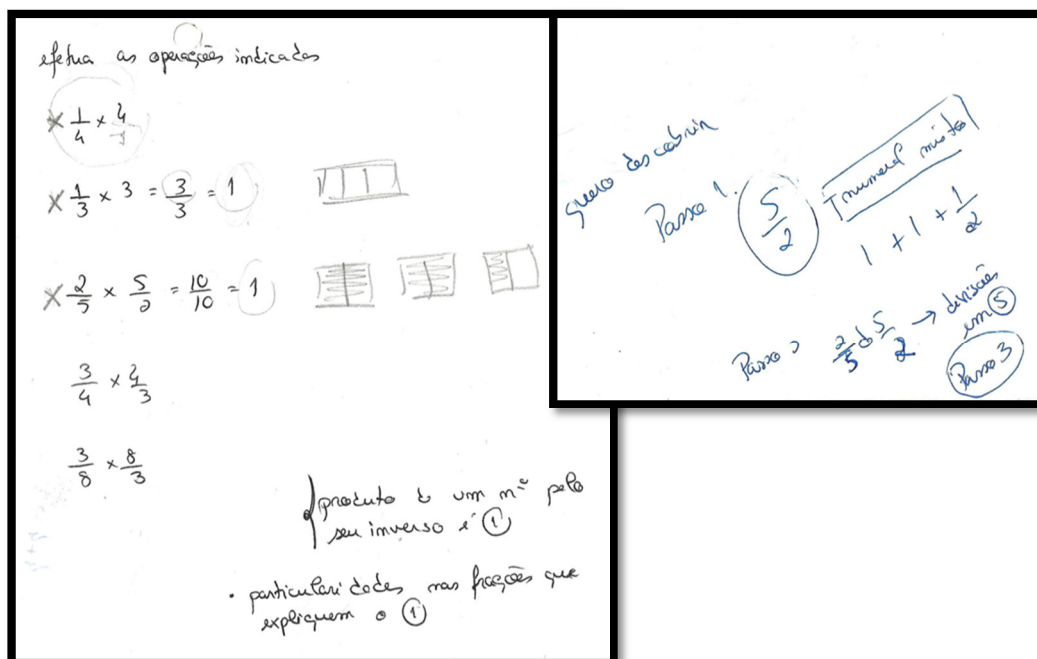 efetua as operações indicadas
× 1/4 × 4/1
× 1/3 × 3 = 3/3 = 1
× 2/5 × 5/2 = 10/10 = 1
3/4 × 4/3
3/8 × 8/3
produto de um nº pelo
seu inverso é 1
• particularidades nas frações que
expliquem o 1
quero descobrir
Passo 1. 5/2 numeral misto
1 + 1 + 1/2
Passo 2 2/5 de 5/2 → divisões
em 5
Passo 3